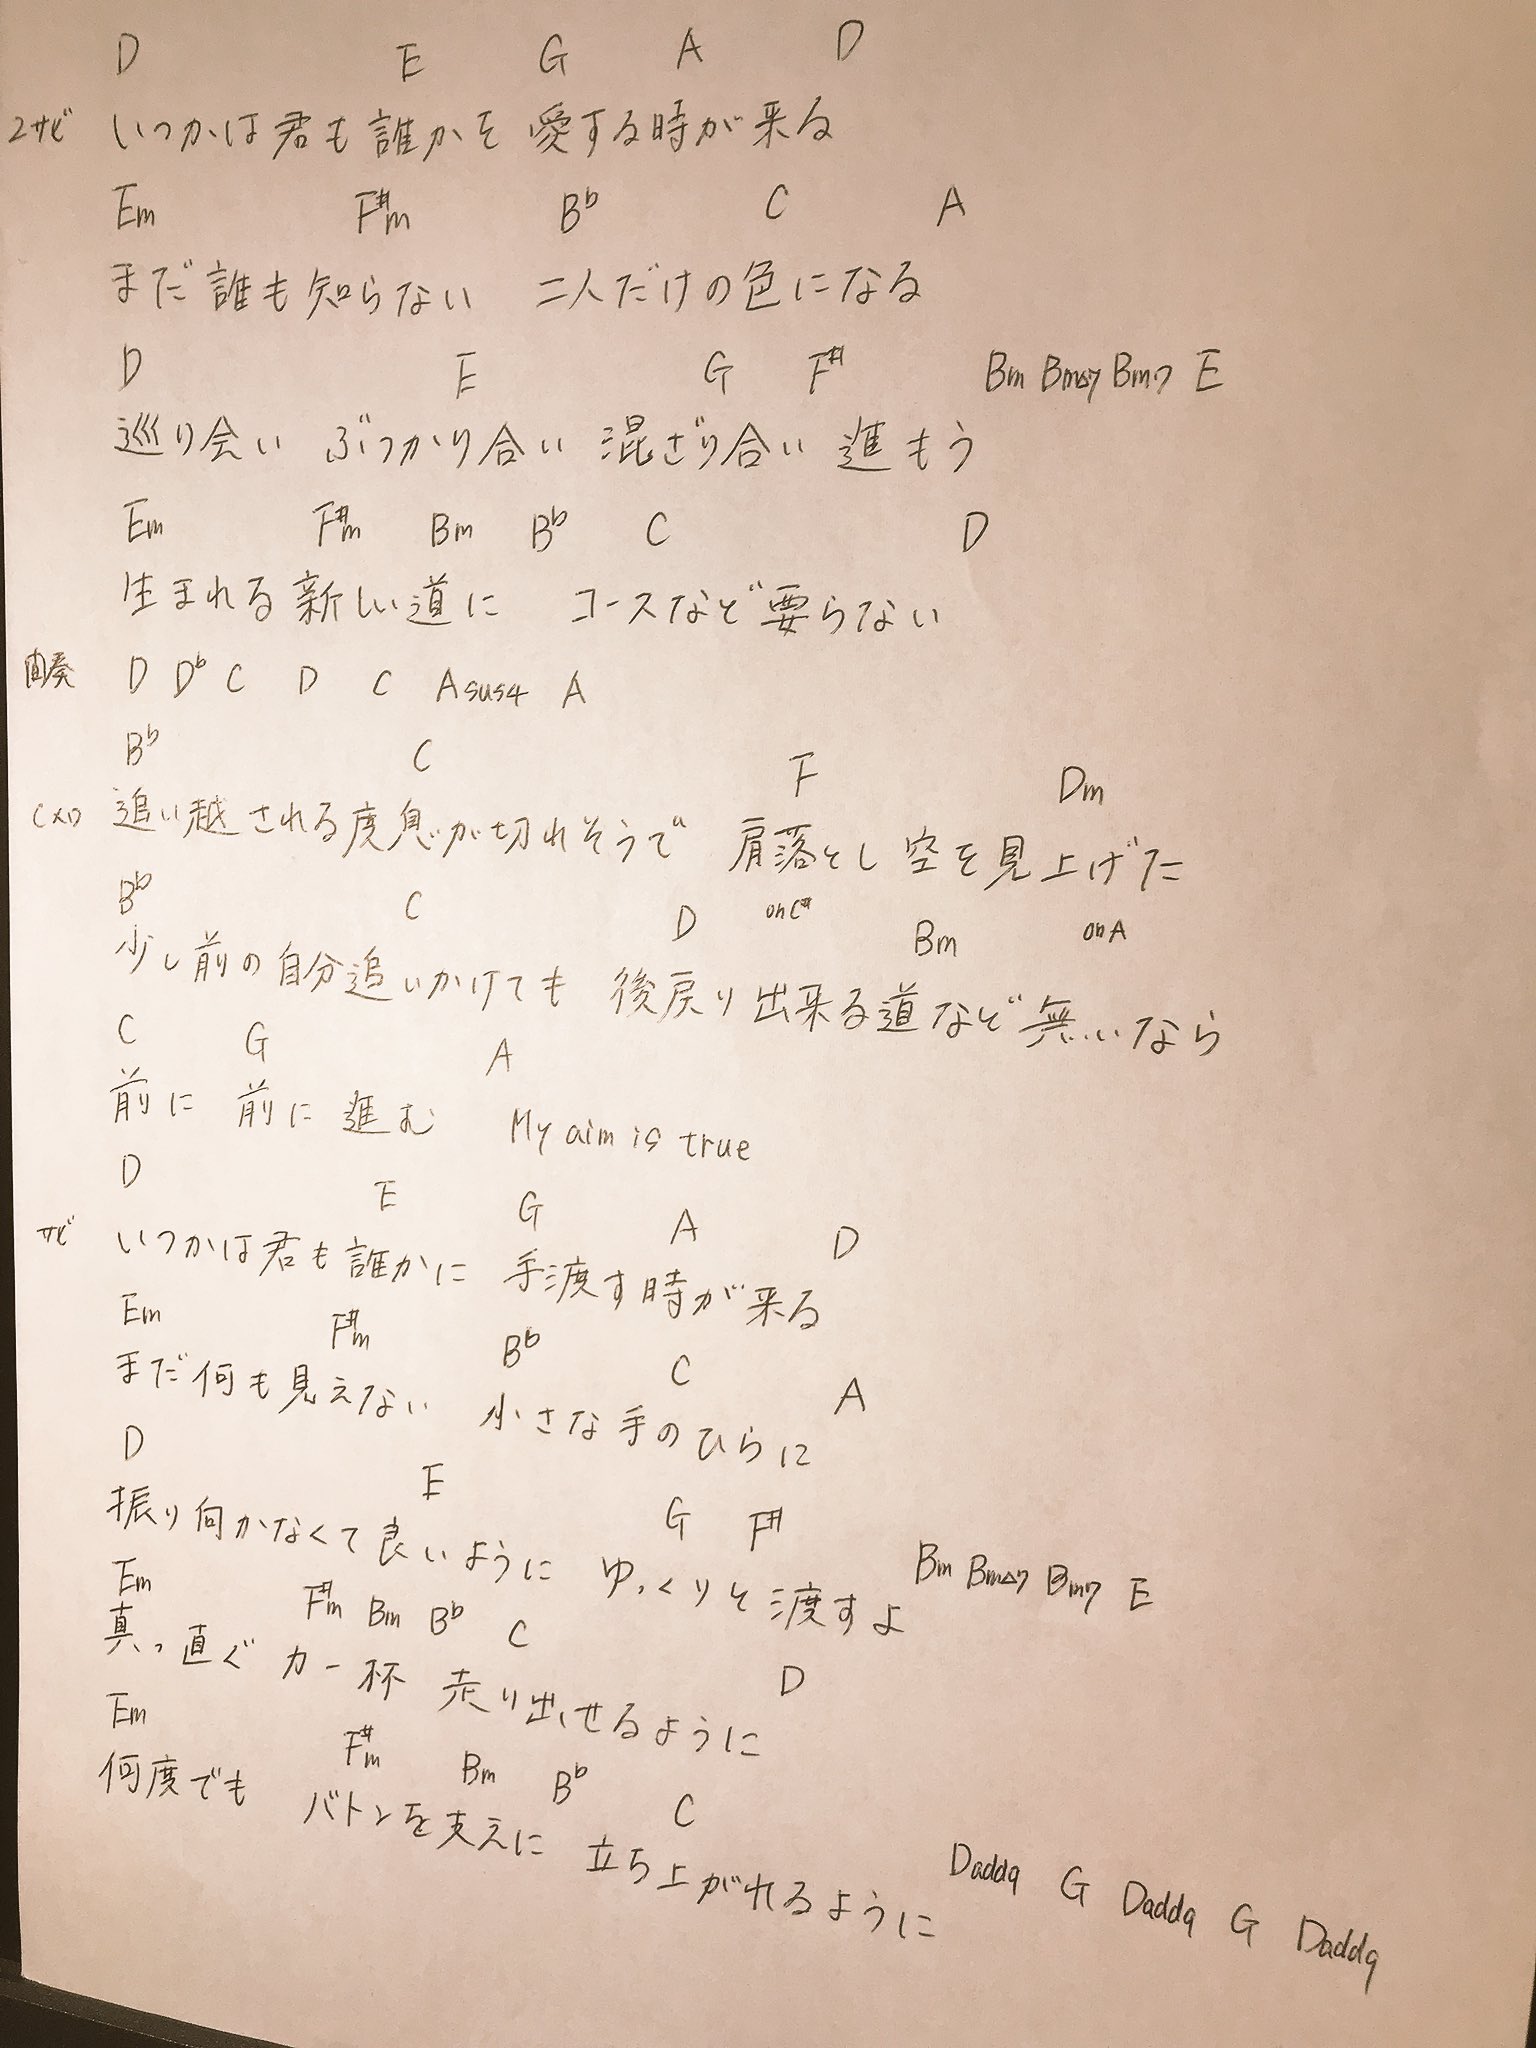 D E G A D
2サビ いつかは君も誰かを 愛する時が来る
Em F#m B♭ C A
まだ誰も知らない 二人だけの色になる
D E G F# Bm Bm△7 Bm7 E
巡り会い ぶつかり合い 混ざり合い 進もう
Em F#m Bm B♭ C D
生まれる新しい道に コースなど要らない
間奏 D D♭ C D C Asus4 A
B♭ C F Dm
Cメロ 追い越される度息が切れそうで 肩落とし空を見上げた
B♭ C D onC# Bm onA
少し前の自分追いかけても 後戻り出来る道など無いなら
C G A
前に 前に 進む My aim is true
D E G A D
サビ いつかは君も誰かに 手渡す時が来る
Em F#m B♭ C A
まだ何も見えない 小さな手のひらに
D E G F# Bm Bm△7 Bm7 E
振り向かなくて良いように ゆっくりと渡すよ
Em F#m Bm B♭ C D
真っ直ぐ 力一杯 走り出せるように
Em F#m Bm B♭ C Dadd9 G Dadd9 G Dadd9
何度でも バトンを支えに 立ち上がれるように